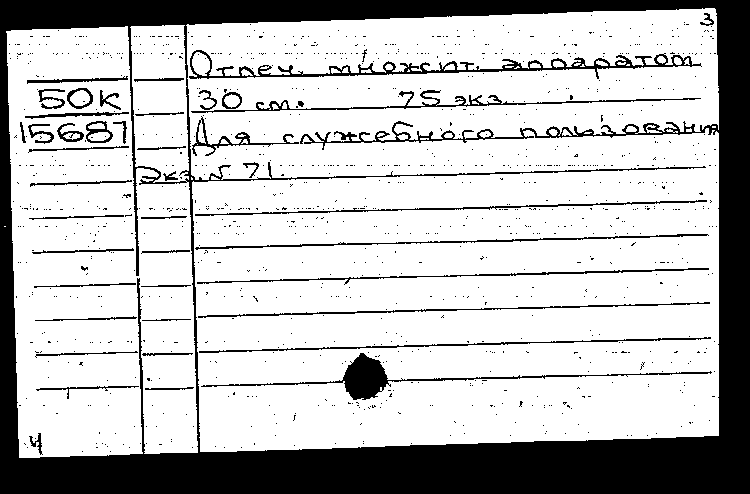 3
Отпеч. множит. аппаратом
50к 30 см. 75 экз.
15687 Для служебного пользования
Экз. № 71.
4